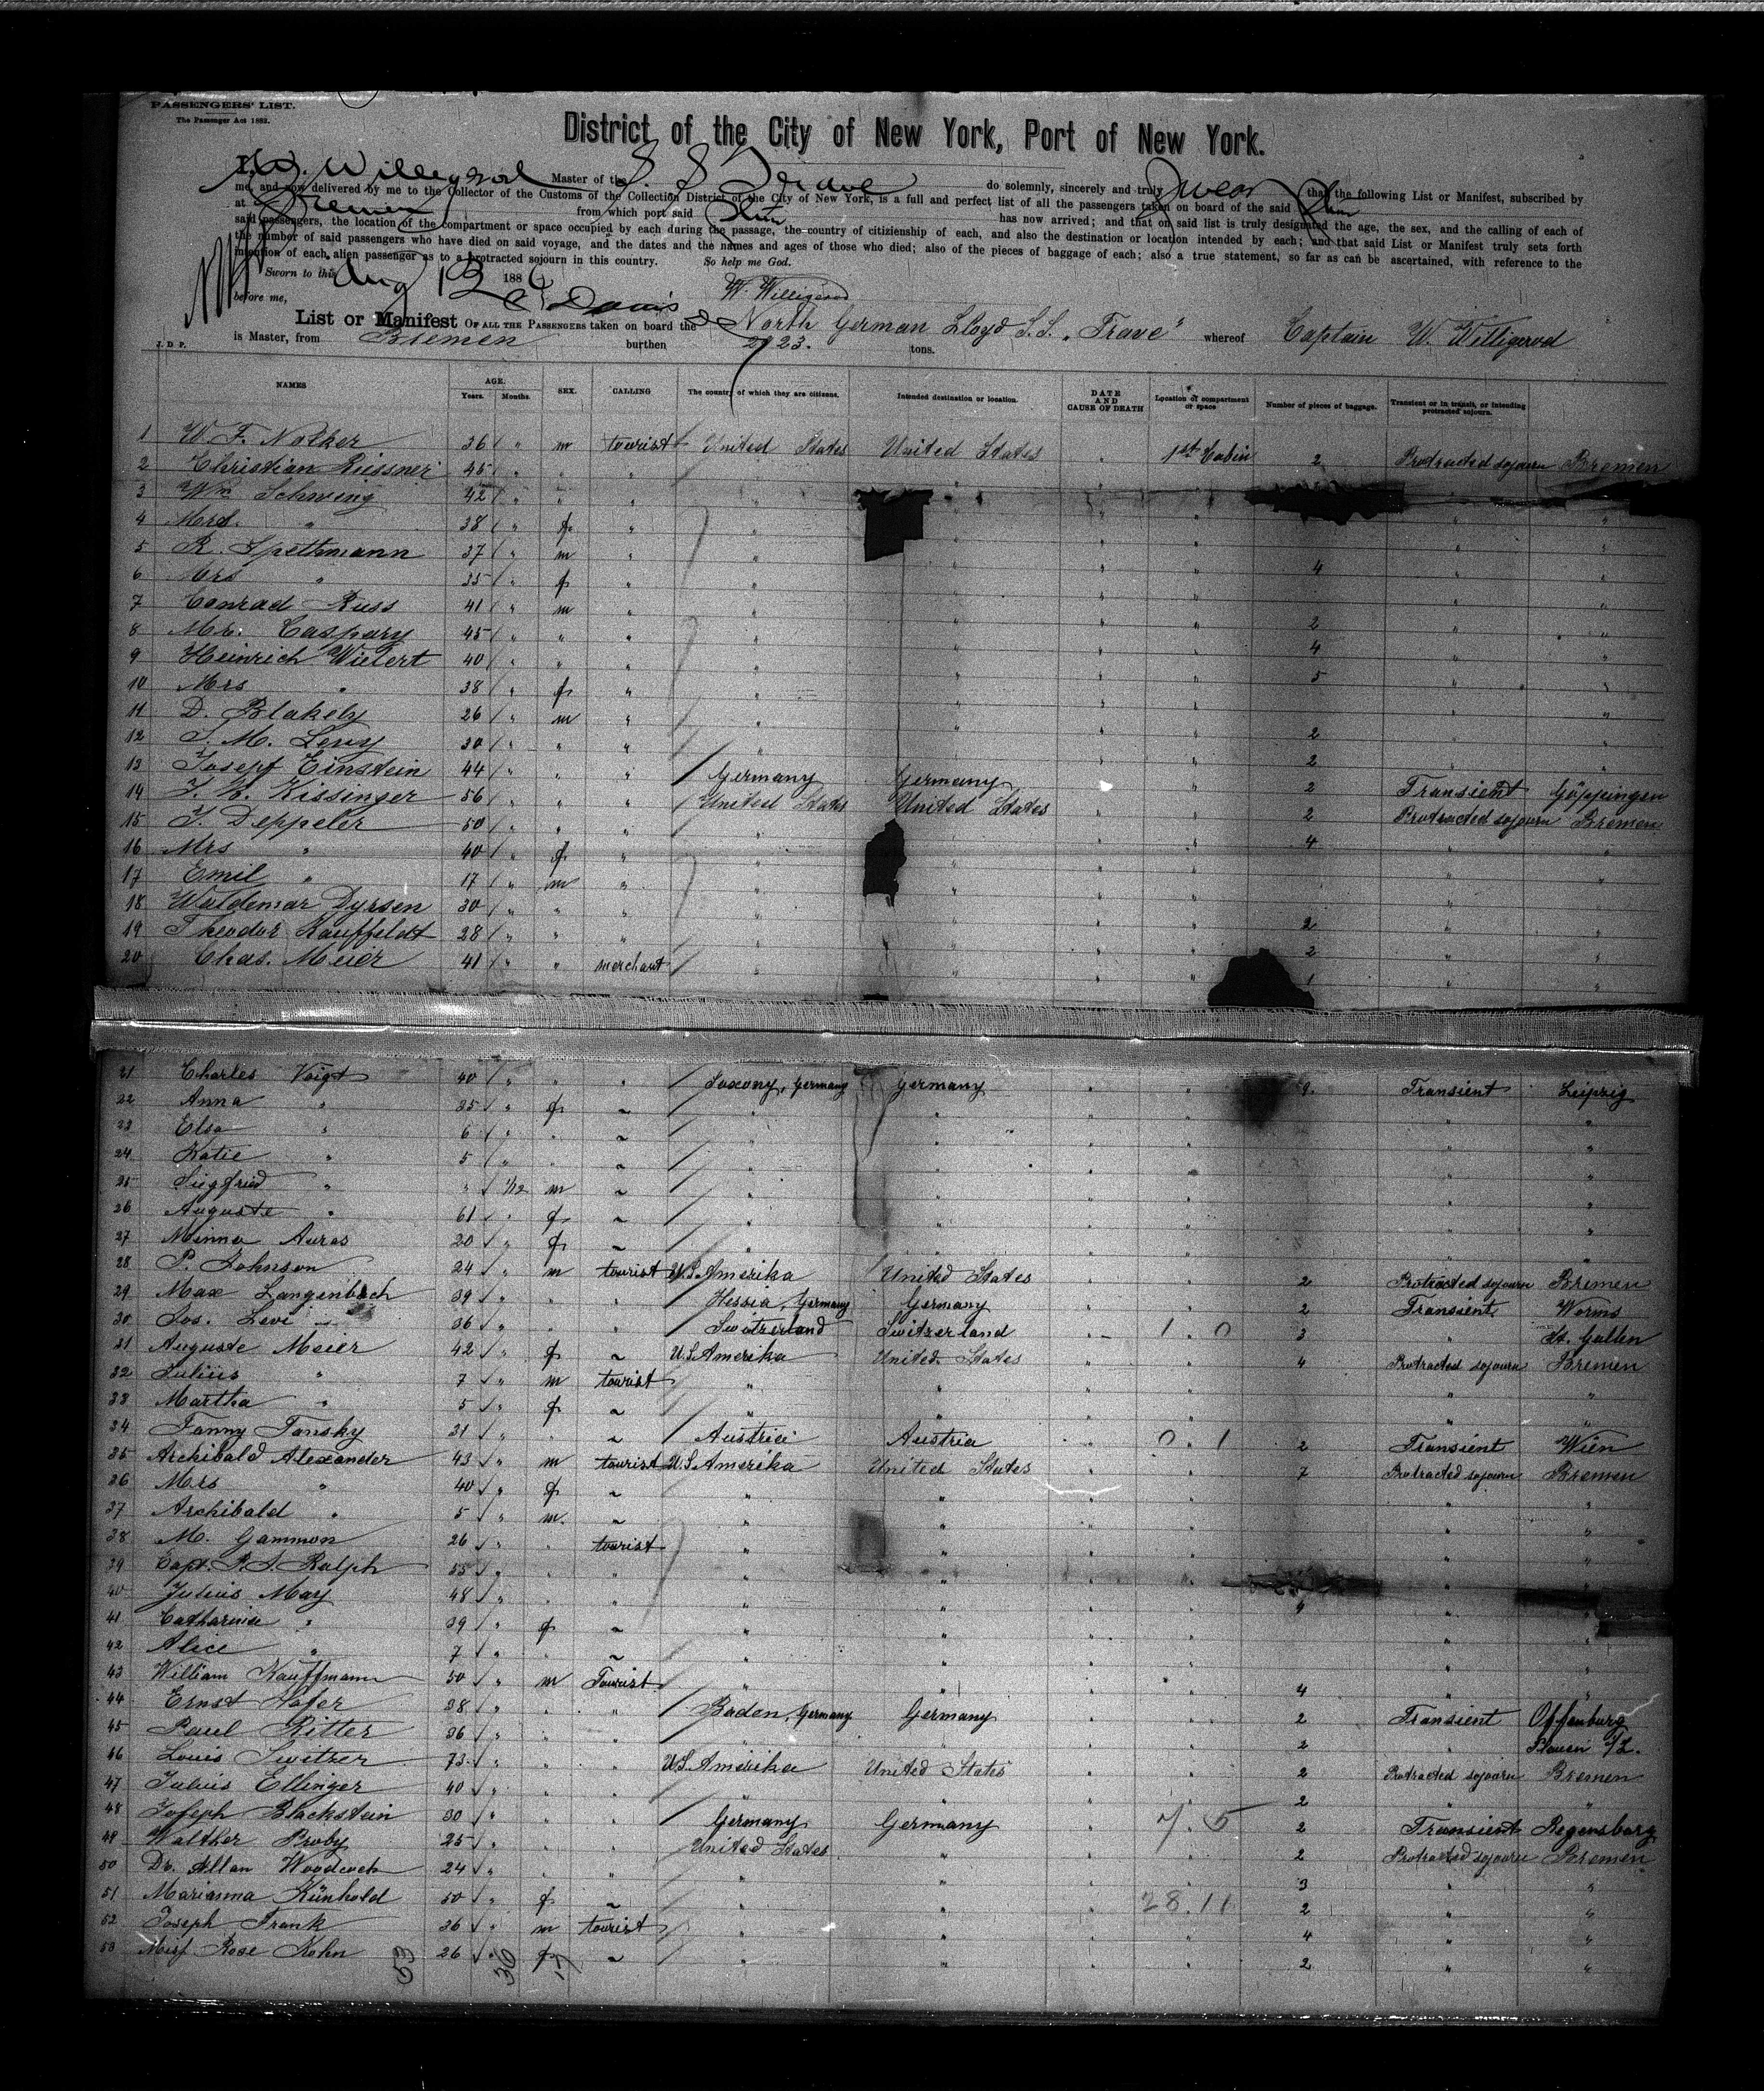 PASSENGERS' LIST.
The Passenger Act 1882.
District of the City of New York, Port of New York.
I, W. Willigerod Master of the S. S. Trave do solemnly, sincerely and truly swear that the following List or Manifest, subscribed by
me, and now delivered by me to the Collector of the Customs of the Collection District of the City of New York, is a full and perfect list of all the passengers taken on board of the said Ship
at Bremen from which port said Ship has now arrived; and that on said list is truly designated the age, the sex, and the calling of each of
said passengers, the location of the compartment or space occupied by each during the passage, the country of citizienship of each, and also the destination or location intended by each; and that said List or Manifest truly sets forth
the number of said passengers who have died on said voyage, and the dates and the names and ages of those who died; also of the pieces of baggage of each; also a true statement, so far as can be ascertained, with reference to the
intention of each alien passenger as to a protracted sojourn in this country. So help me God.
Sworn to this Aug 13 1886 W. Willigerod
before me, Davis
List or Manifest OF ALL THE PASSENGERS taken on board the North German Lloyd S.S. "Trave" whereof Captain W. Willigerod
is Master, from Bremen burthen 2923. tons.
J. D. P.
NAMES AGE. Years. Months. SEX. CALLING The country of which they are citizens. Intended destination or location. DATE AND CAUSE OF DEATH Location of compartment or space Number of pieces of baggage. Transient or in transit, or intending protracted sojourn.
1 W. F. Nolker 36 " m tourist United States United States " 1st Cabin 2 Protracted sojourn Bremen
2 Christian Riessner 45 " " " " "
3 Wm Schwing 42 " " " "
4 Mrs. " 38 " f " " "
5 R. Spethmann 37 " m " " " 4 " "
6 Mrs " 35 " f " " "
7 Conrad Russ 41 " m " " " 2 " "
8 Mr. Caspary 45 " " " " " 4 " "
9 Heinrich Wiebert 40 " " " " " 5 " "
10 Mrs " 38 " f " " "
11 D. Blakely 26 " m " " " 2 " "
12 S. M. Levy 30 " " " " " 2 " "
13 Josepf Einstein 44 " " " Germany Germany " " 2 Transient Göppingen
14 J. B. Kissinger 56 " " " United States United States " " 2 Protracted sojourn Bremen
15 J. Deppeler 50 " " " " " 4 " "
16 Mrs " 40 " f " "
17 Emil " 17 " m " " "
18 Waldemar Dyrsen 30 " " " " " 2 " "
19 Theodor Kauffeldt 28 " " " " " 2 " "
20 Chas. Meier 41 " " merchant " " 1 " "
21 Charles Voigt 40 " " " Saxony, Germany Germany " " 9. Transient Leipzig
22 Anna " 35 " f ~ " " " "
23 Elsa " 6 " " ~ " " " "
24 Katie " 5 " " ~ " " " "
25 Siegfried " " 1/12 m ~ " " " "
26 Auguste " 61 " f ~ " " " "
27 Minna Auras 20 " f ~ " " "
28 P. Johnson 24 " m tourist U.S. Amerika United States " " 2 Protracted sojourn Bremen
29 Max Langenbach 39 " " " Hessia, Germany Germany " " 2 Transient Worms
30 Jos. Levi 36 " " " Switzerland Switzerland 1 . 0 3 " St. Gallen
31 Auguste Meier 42 " f ~ U.S. Amerika United States " " 4 Protracted sojourn Bremen
32 Julius " 7 " m tourist " " " "
33 Martha " 5 " f ~ " " " "
34 Fanny Tansky 21 " " ~ Austria Austria 0 . 1 2 Transient Wien
35 Archibald Alexander 43 " m tourist U.S. Amerika United States " 7 Protracted sojourn Bremen
36 Mrs " 40 " f ~ " " " "
37 Archibald " 5 " m. ~ " " " "
38 M. Gammon 26 " " tourist " " " "
39 Capt. P. S. Ralph 55 " " " " " "
40 Julius May 48 " " " " " 4 " "
41 Catharina " 39 " f ~ " " " "
42 Alice " 7 " " ~ " " "
43 William Kauffmann 50 " m Tourist " " 4 " "
44 Ernst Hofer 38 " " " Baden, Germany Germany " " 2 Transient Offenburg
45 Paul Ritter 36 " " " " " 2 " Plauen
46 Louis Switzer 73 " " " U.S. Amerika United States " " 2 Protracted sojourn Bremen
47 Julius Ellinger 40 " " " " " 2 " "
48 Joseph Blackstein 30 " " " Germany Germany 7 . 5 2 Transient Regensburg
49 Walther Proby 25 " " " United States " 2 Protracted sojourn Bremen
50 Dr. Allan Woodcock 24 " " " " " 3 " "
51 Marianna Künhold 50 " f ~ " " 28.11 2 " "
52 Joseph Frank 36 " m tourist " " 4 " "
53 Miss Rose Kohn 26 " f ~ " " 2 " "
53 36 17